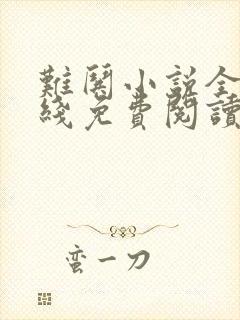 難關小說全
綫免費閱讀
蛮一刀